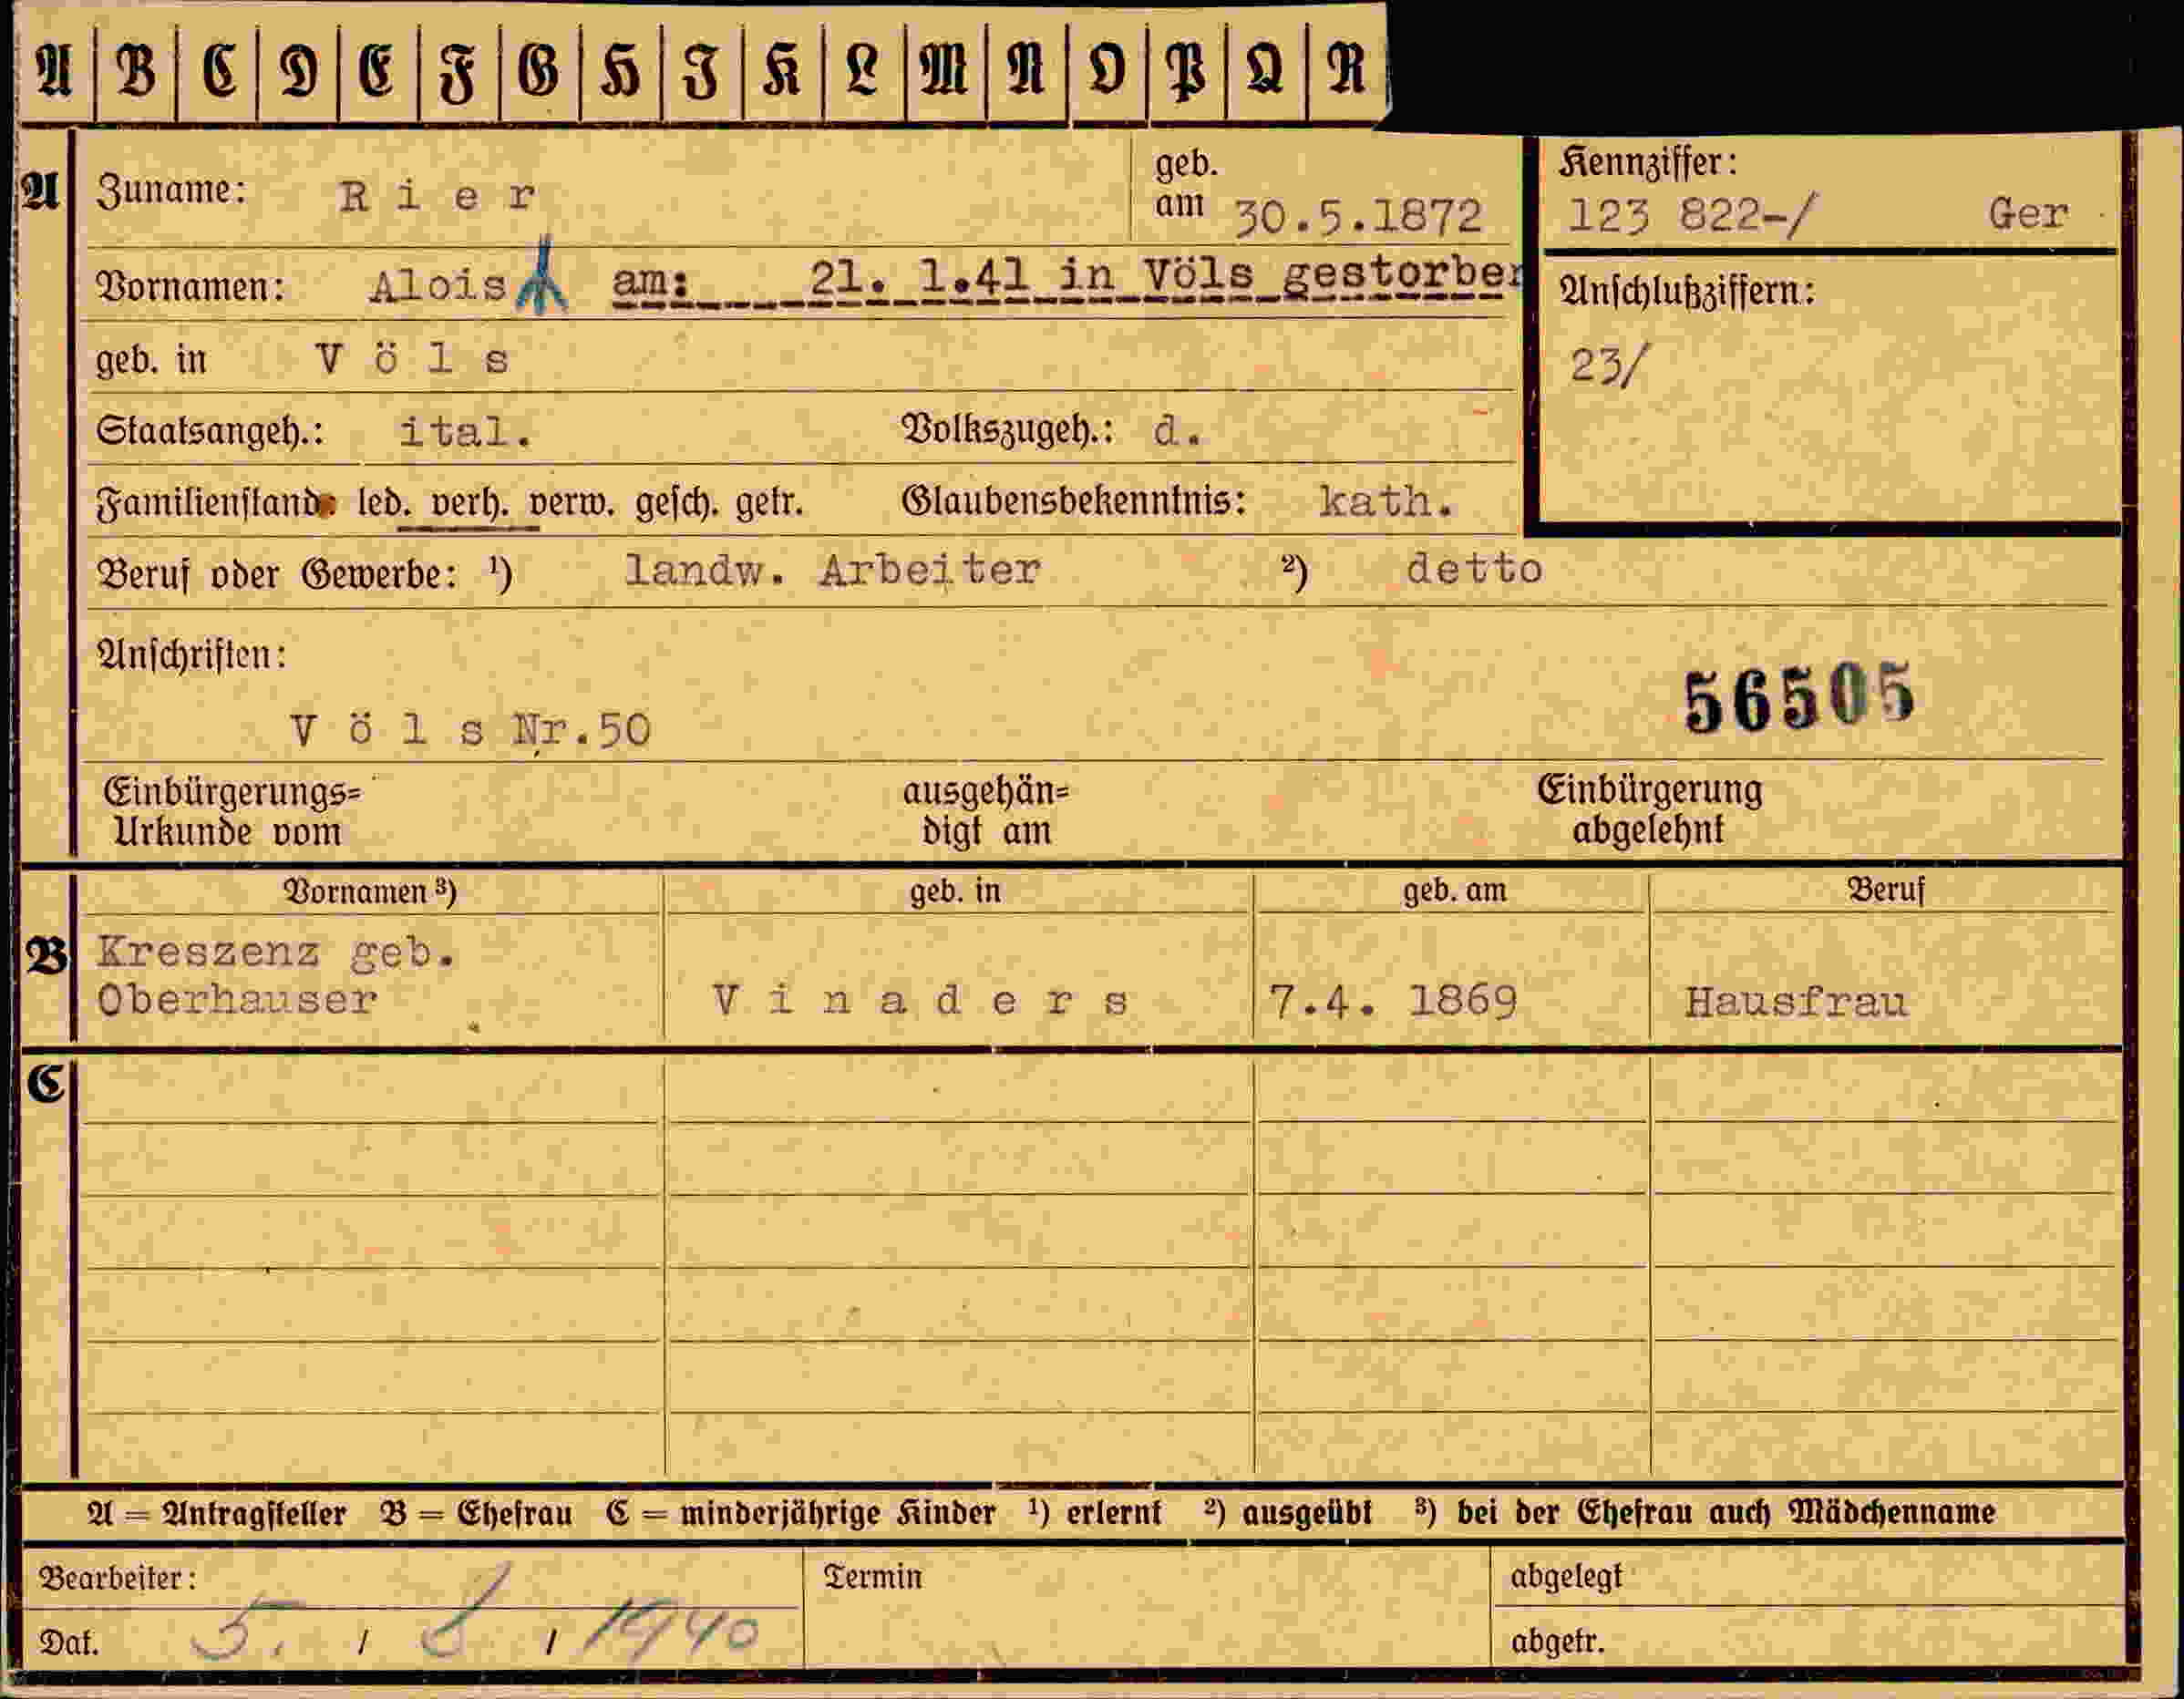 A B C D E F G H I K L M N O P Q R
A Zuname: Rier geb. am 30.5.1872 Kennziffer: 123 822-/ Ger
Vornamen: Alois am: 21. 1.41 in Völs gestorben Anschlußziffern:
geb. in Völs 23/
Staatsangeh.: ital. Volkszugeh.: d.
Familienstand: led. verh. verw. gesch. getr. Glaubensbekenntnis: kath.
Beruf oder Gewerbe: ¹) landw. Arbeiter ²) detto
Anschriften:
56505
Völs Nr.50
Einbürgerungs= ausgehän= Einbürgerung
Urkunde vom digt am abgelehnt
Vornamen ³) geb. in geb. am Beruf
B Kreszenz geb.
Oberhauser Vinaders 7.4. 1869 Hausfrau
C
A = Antragsteller B = Ehefrau C = minderjährige Kinder ¹) erlernt ²) ausgeübt ³) bei der Ehefrau auch Mädchenname
Bearbeiter: Termin abgelegt
Dat. 5. / / 1940 abgetr.